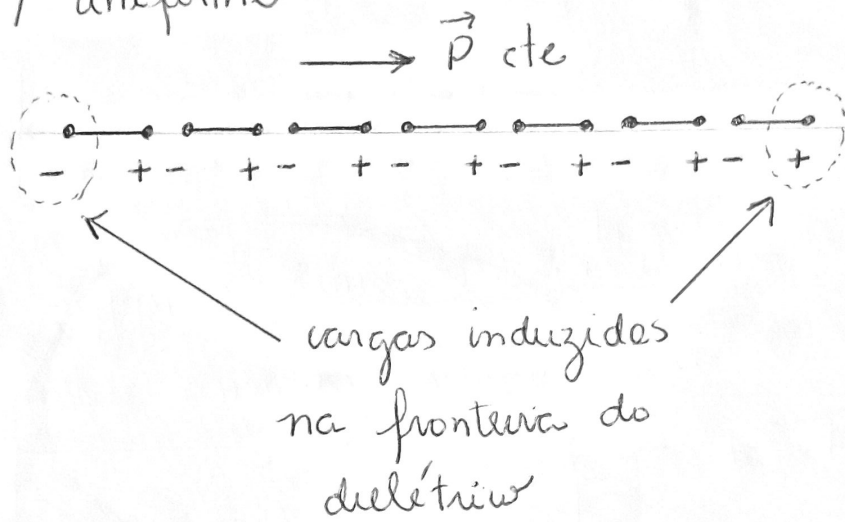 P uniforme
P⃗ cte
- + - + - + - + - + - + - +
cargas induzidas
na fronteira do
dielétrico